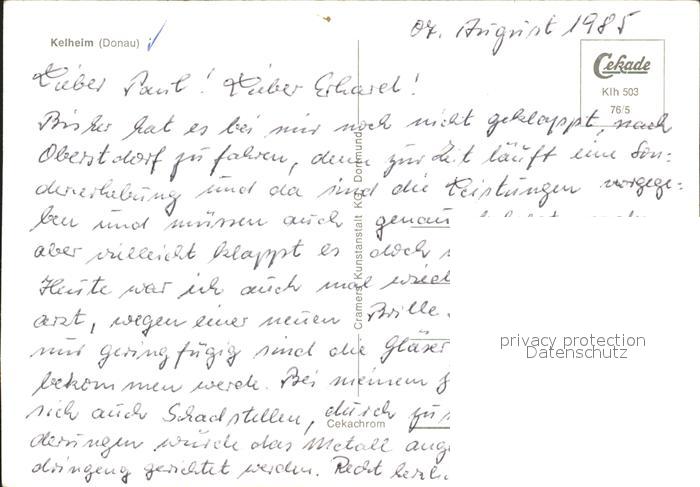 04. August 1985
Kelheim (Donau)
Cekade
Klh 503
76/5
Lieber Paul! Lieber Erhard!
Bisher hat es bei mir noch nicht geklappt, nach
Oberstdorf zu fahren, denn zur Zeit läuft eine Son:
dererhebung und da sind die Leistungen vorgege:
ben und müssen auch genau
aber vielleicht klappt es doch
Heute war ich auch mal
arzt, wegen einer neuen Brille.
nur geringfügig sind die Gläser
bekommen werde. Bei meinem
sich auch Schadstellen, durch
derungen wurde das Metall
dringend gerichtet werden. Recht
Cramers Kunstanstalt KG, Dortmund
Cekachrom
privacy protection
Datenschutz